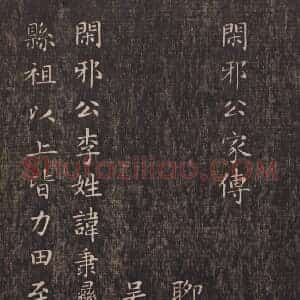 閑邪公家傳
聊
吴
閑邪公李姓諱秉彝
縣祖以上皆力田至
shufaziliao.COM